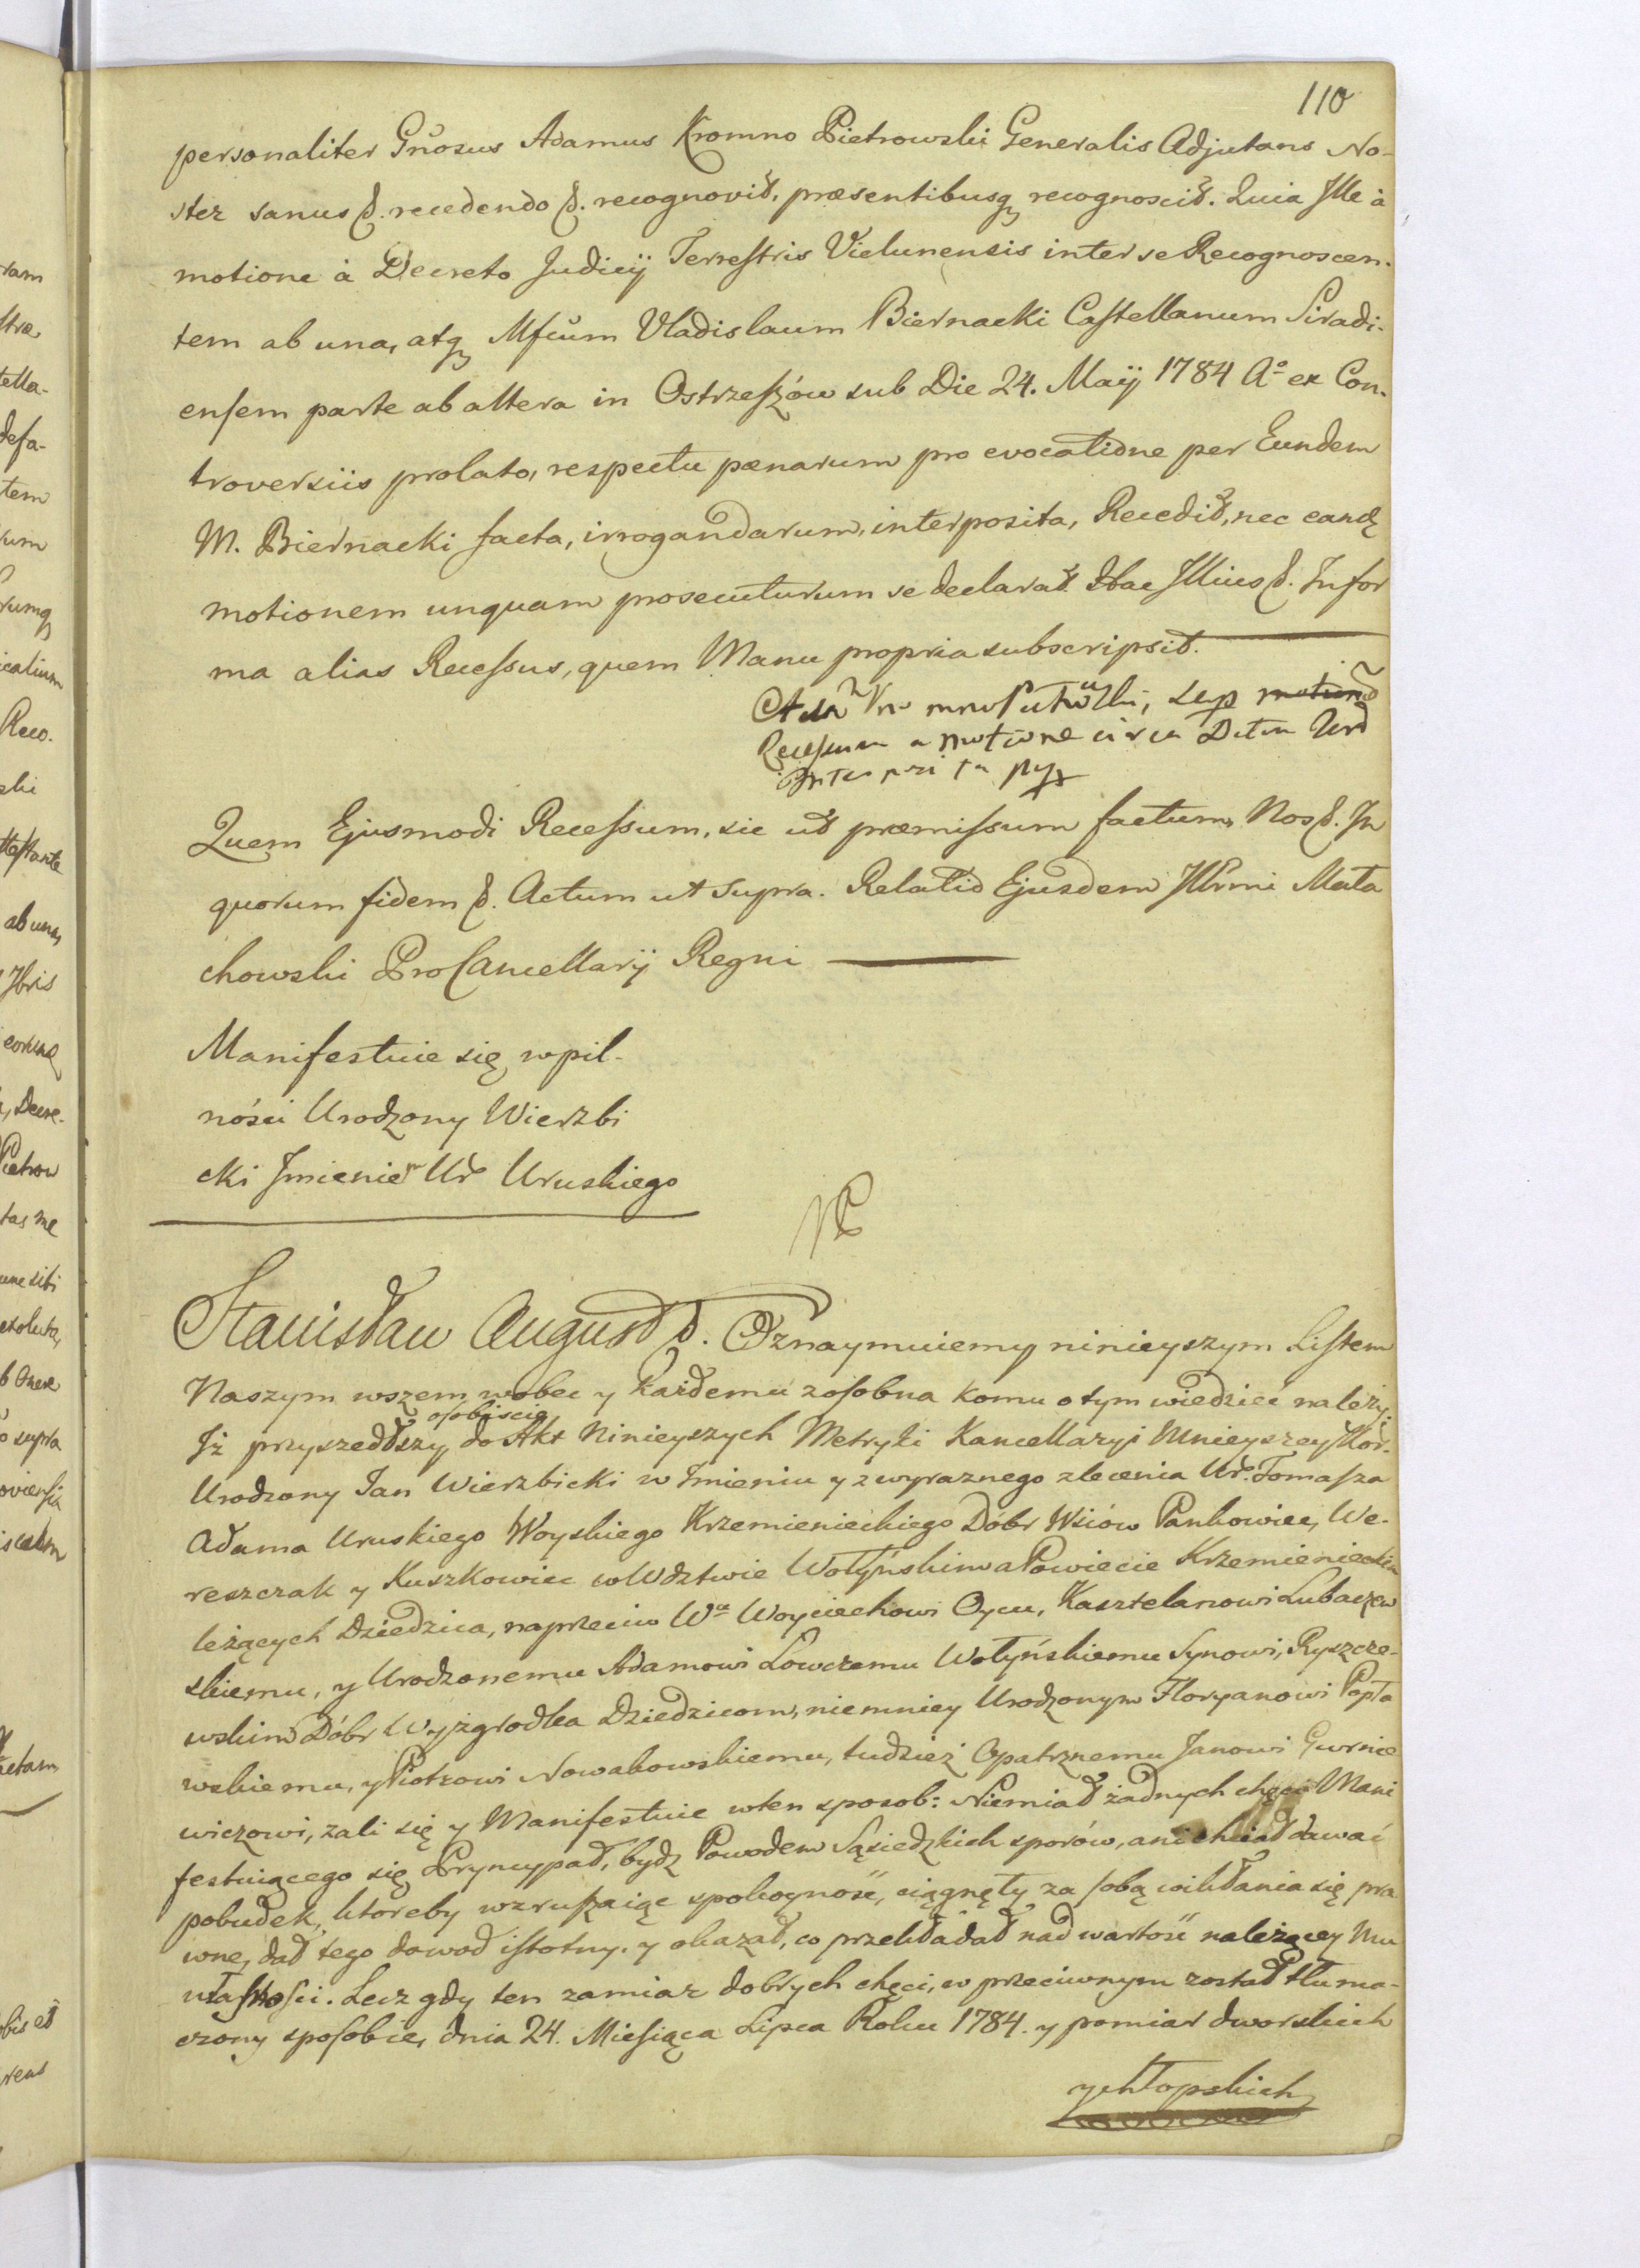 110
personaliter Gnosus Adamus Kromno Pietrowski Generalis Adjutans No-
ster sanus &. recedendo &. recognovit, præsentibusq recognoscit. Quia Ille à
motione à Decreto Judicij Terrestris Vielunensis inter se Recognoscen-
tem ab una, atq Mfcum Vladislaum Biernacki Castellanum Siradi-
ensem parte ab altera in Ostrzeszów sub Die 24. Maij 1784 Aº ex Con-
troversiis prolato, respectu pænarum pro evocatione per Eundem
M. Biernacki facta, irrogandarum, interposita, Recedit, nec eand
motionem unquam prosecuturum se declarat. Hac Illius &. Infor
ma alias Recessus, quem Manu propria subscripsit.
Recessum a motione circa
Quem Ejusmodi Recessum, sic ut præmissum factum, Nos &. In
quorum fidem &. Actum ut supra. Relatio Ejusdem Illrmi Mała
chowski ProCancellarij Regni
Manifestuie się w pil-
ności Urodzony Wierzbi
cki Imieniem Ur Uruskiego
Stanisław August &. Oznaymuiemy ninieyszym Listem
Naszym wszem wobec y każdemu zosobna komu o tym wiedzieć należy:
Iż przyszedłszy osobiscie do Akt Ninieyszych Metryki Kancellaryi Mnieyszey Kor.
Urodzony Jan Wierzbicki w Imieniu y z wyraznego zlecenia Ur. Tomasza
Adama Uruskiego Woyskiego Krzemienieckiego Dóbr Wsiów Pankowiec, We-
reszczak y Kuszkowiec w Wdztwie Wołyńskim a Powiecie Krzemienieckim
leżących Dziedzica, naprzeciw Wu Woyciechowi Oycu, Kasztelanowi Lubaczew
skiemu, y Urodzonemu Adamowi Łowczemu Wołyńskiemu Synowi, Ryszcze-
wskim Dóbr Wyżgrodka Dziedzicom, niemniey Urodzonym Floryanowi Popła
wskiemu, y Piotrowi Nowakowskiemu, tudzież Opatrznemu Janowi Gurnie
wiczowi, żali się y Manifestuie w ten sposob: Niemiał żadnych chęci Mani
festuiącego się Pryncypał, bydz Powodem Sąsiedzkich sporów, ani chciał dawać
pobudek, ktoreby wzruszaiąc spokoyność, ciągnęły za sobą wikłania się pra
wne, dał tego dowod istotny. y okazał, co przekładał nad wartość należącey Mu
własności. Lecz gdy ten zamiar dobrych chęci, w przeciwnym został tłuma-
czony sposobie, dnia 24. Miesiąca Lipca Roku 1784. y pomiar dworskich
y chłopskich